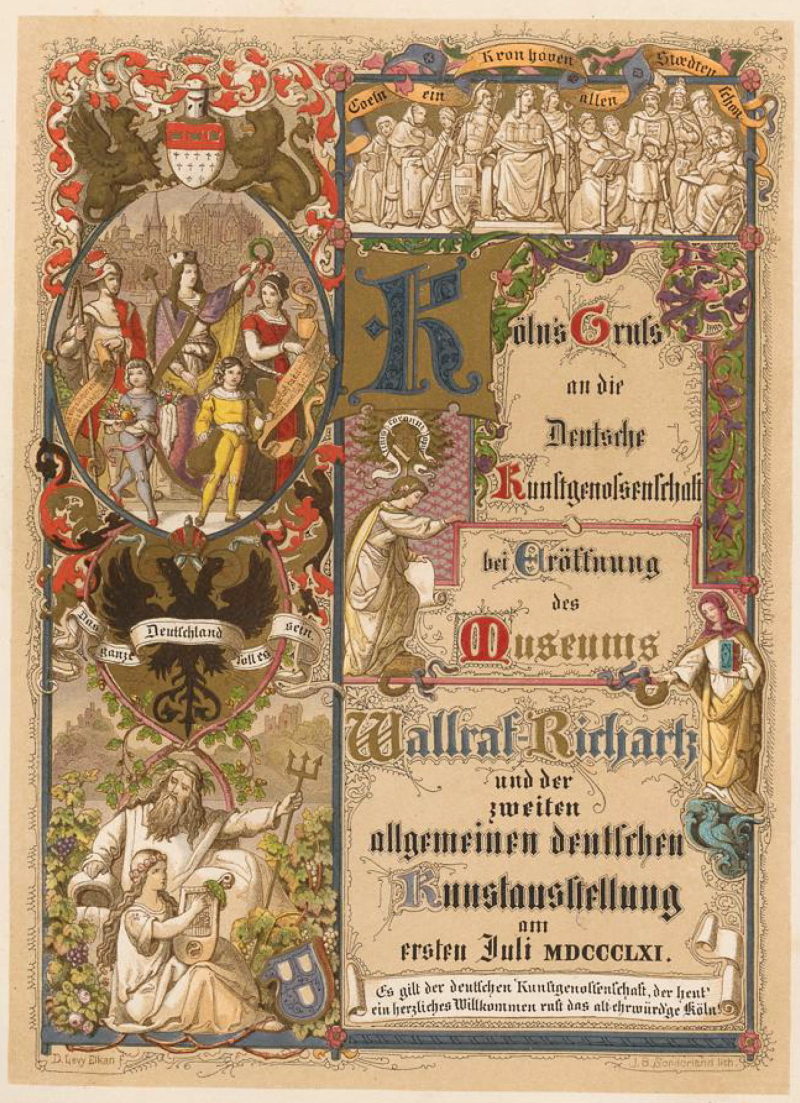 Coeln ein Kronhoven allen Staedten schon
Kölns Gruſs
an die
Deutsche
Kunſtgenoſsenſchaft
bei Eröffnung
des
Museums
Wallraf-Richartz
und der
zweiten
allgemeinen deutſchen
Kunstausſtellung
am
erſten Juli MDCCCLXI.
Es gilt der deutſchen Kunſtgenoſſenſchaft, der heut'
ein herzliches Willkommen ruft das alt-ehrwürd'ge Köln!
Das ganze Deutſchland ſoll es sein.
D. Levy Elkan f.
J. B. Sonderland lith.